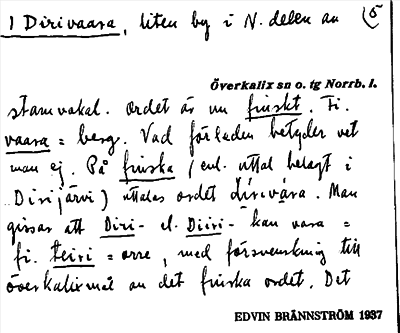 1 Dirivaara, liten by i N. delen av (5
Överkalix sn o. tg Norrb. l.
stamvokal. Ordet är nu finskt. Fi.
vaara = berg. Vad förleden betyder vet
man ej. På finska (enl. uttal belagt i
Dirijärvi) uttalas ordet dirivāra. Man
gissar att Diri- el. Diiri- kan vara =
fi. teiri = orre, med försvenskning till
överkalixmål av det finska ordet. Det
EDVIN BRÄNNSTRÖM 1937